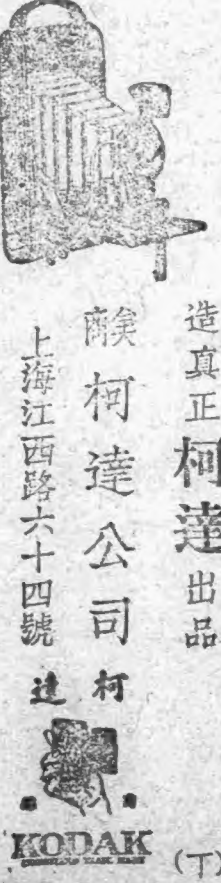 造真正柯達出品
美商柯達公司
上海江西路六十四號
柯達
KODAK
(丁)